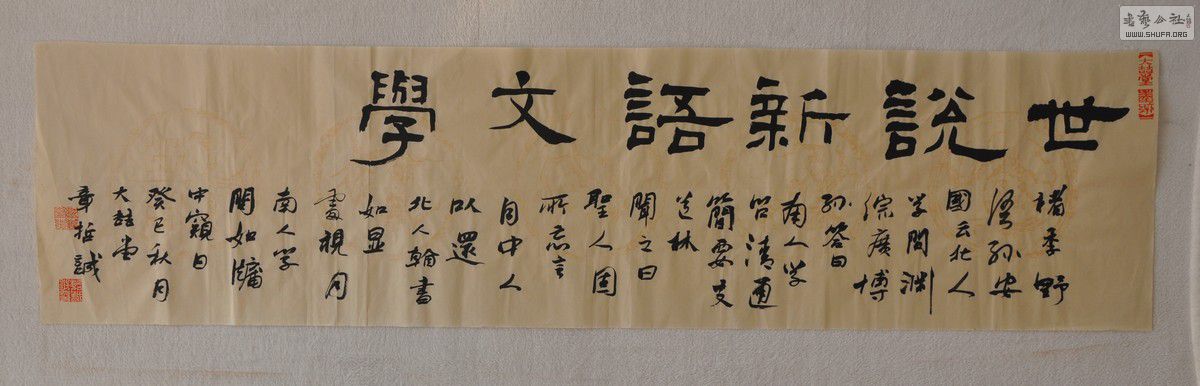 世說新語文學
褚季野
語孫安
國云北人
学問淵
綜廣博
孫答曰
南人学
問清通
簡要支
道林
聞之曰
聖人固
所忘言
自中人
以還
北人翰書
如显
處視月
南人学
問如牖
中窺日
癸巳秋月
大喆堂
章哲誠
書藝公社
WWW.SHUFA.ORG